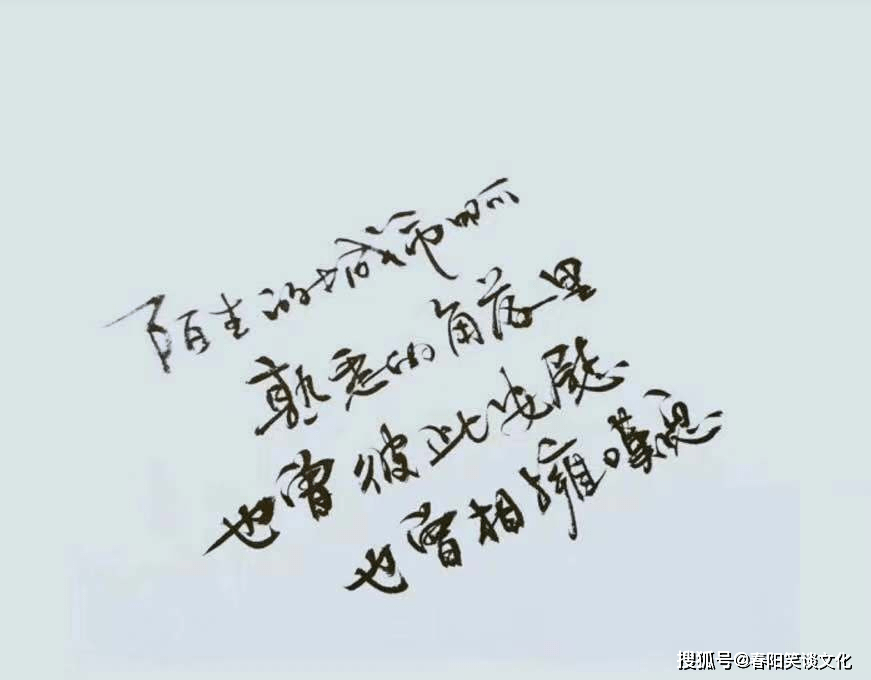 陌生的城市啊
熟悉的角落里
也曾彼此安慰
也曾相拥嘆息
搜狐号@春阳笑谈文化